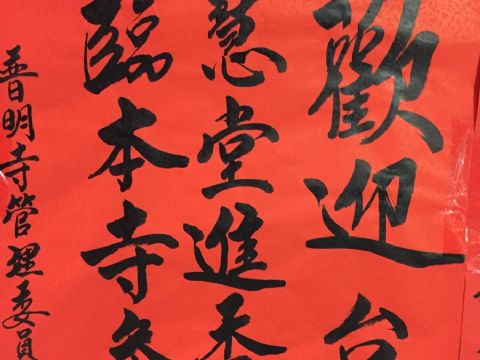 歡迎台
慧堂進香
臨本寺參
普明寺管理委員